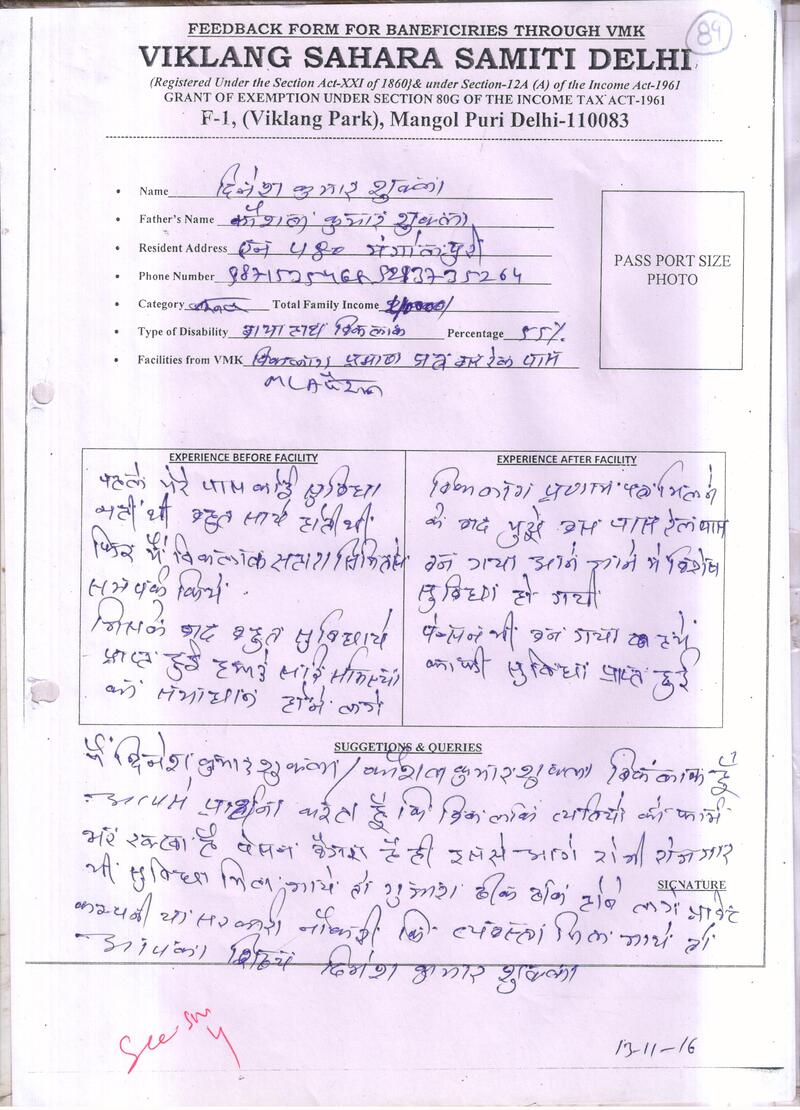 FEEDBACK FORM FOR BANEFICIRIES THROUGH VMK
89
VIKLANG SAHARA SAMITI DELHI
(Registered Under the Section Act-XXI of 1860}& under Section-12A (A) of the Income Act-1961
GRANT OF EXEMPTION UNDER SECTION 80G OF THE INCOME TAX ACT-1961
F-1, (Viklang Park), Mangol Puri Delhi-110083
• Name दिनेश कुमार शुक्ला
• Father's Name कौशल कुमार शुक्ला
• Resident Address एन
• Phone Number
• Category Total Family Income
• Type of Disability बाया हाथ विकलांक Percentage 55%
• Facilities from VMK विकलांग प्रमाण पत्र पास
MLA पेंशन
PASS PORT SIZE
PHOTO
EXPERIENCE BEFORE FACILITY
पहले मेरे पास कोई सुविधा
नहीं थी बहुत होती थी
फिर मैं विकलांक सहारा समिति से
सम्पर्क किये
जिसके बाद बहुत सुविधाये
प्राप्त हुई हमारे सारि
का समाधान होने लगे
EXPERIENCE AFTER FACILITY
विकलांग प्रमाण पत्र मिलने
के बाद मुझे बस पास रेल पास
बन गया आने जाने मे विशेष
सुविधा हो गयी
पेन्सन भी बन गया हमे
काफी सुविधा प्राप्त हुई
SUGGETIONS & QUERIES
मैं दिनेश कुमार शुक्ला / कौशल कुमार शुक्ला विकलांक हूँ
आपसे प्रार्थना करता हूँ कि विकलांक को फार्म
भर रक्खा है पेंसन है ही इससे आगे रोजी रोजगार
भी सुविधा मिल जाये तो गुजारा ठीक ठाक होने लगे
SIGNATURE
कम्पनी या सरकारी नौकरी कि मिल जाये तो
आपका दिनेश कुमार शुक्ला
13-11-16